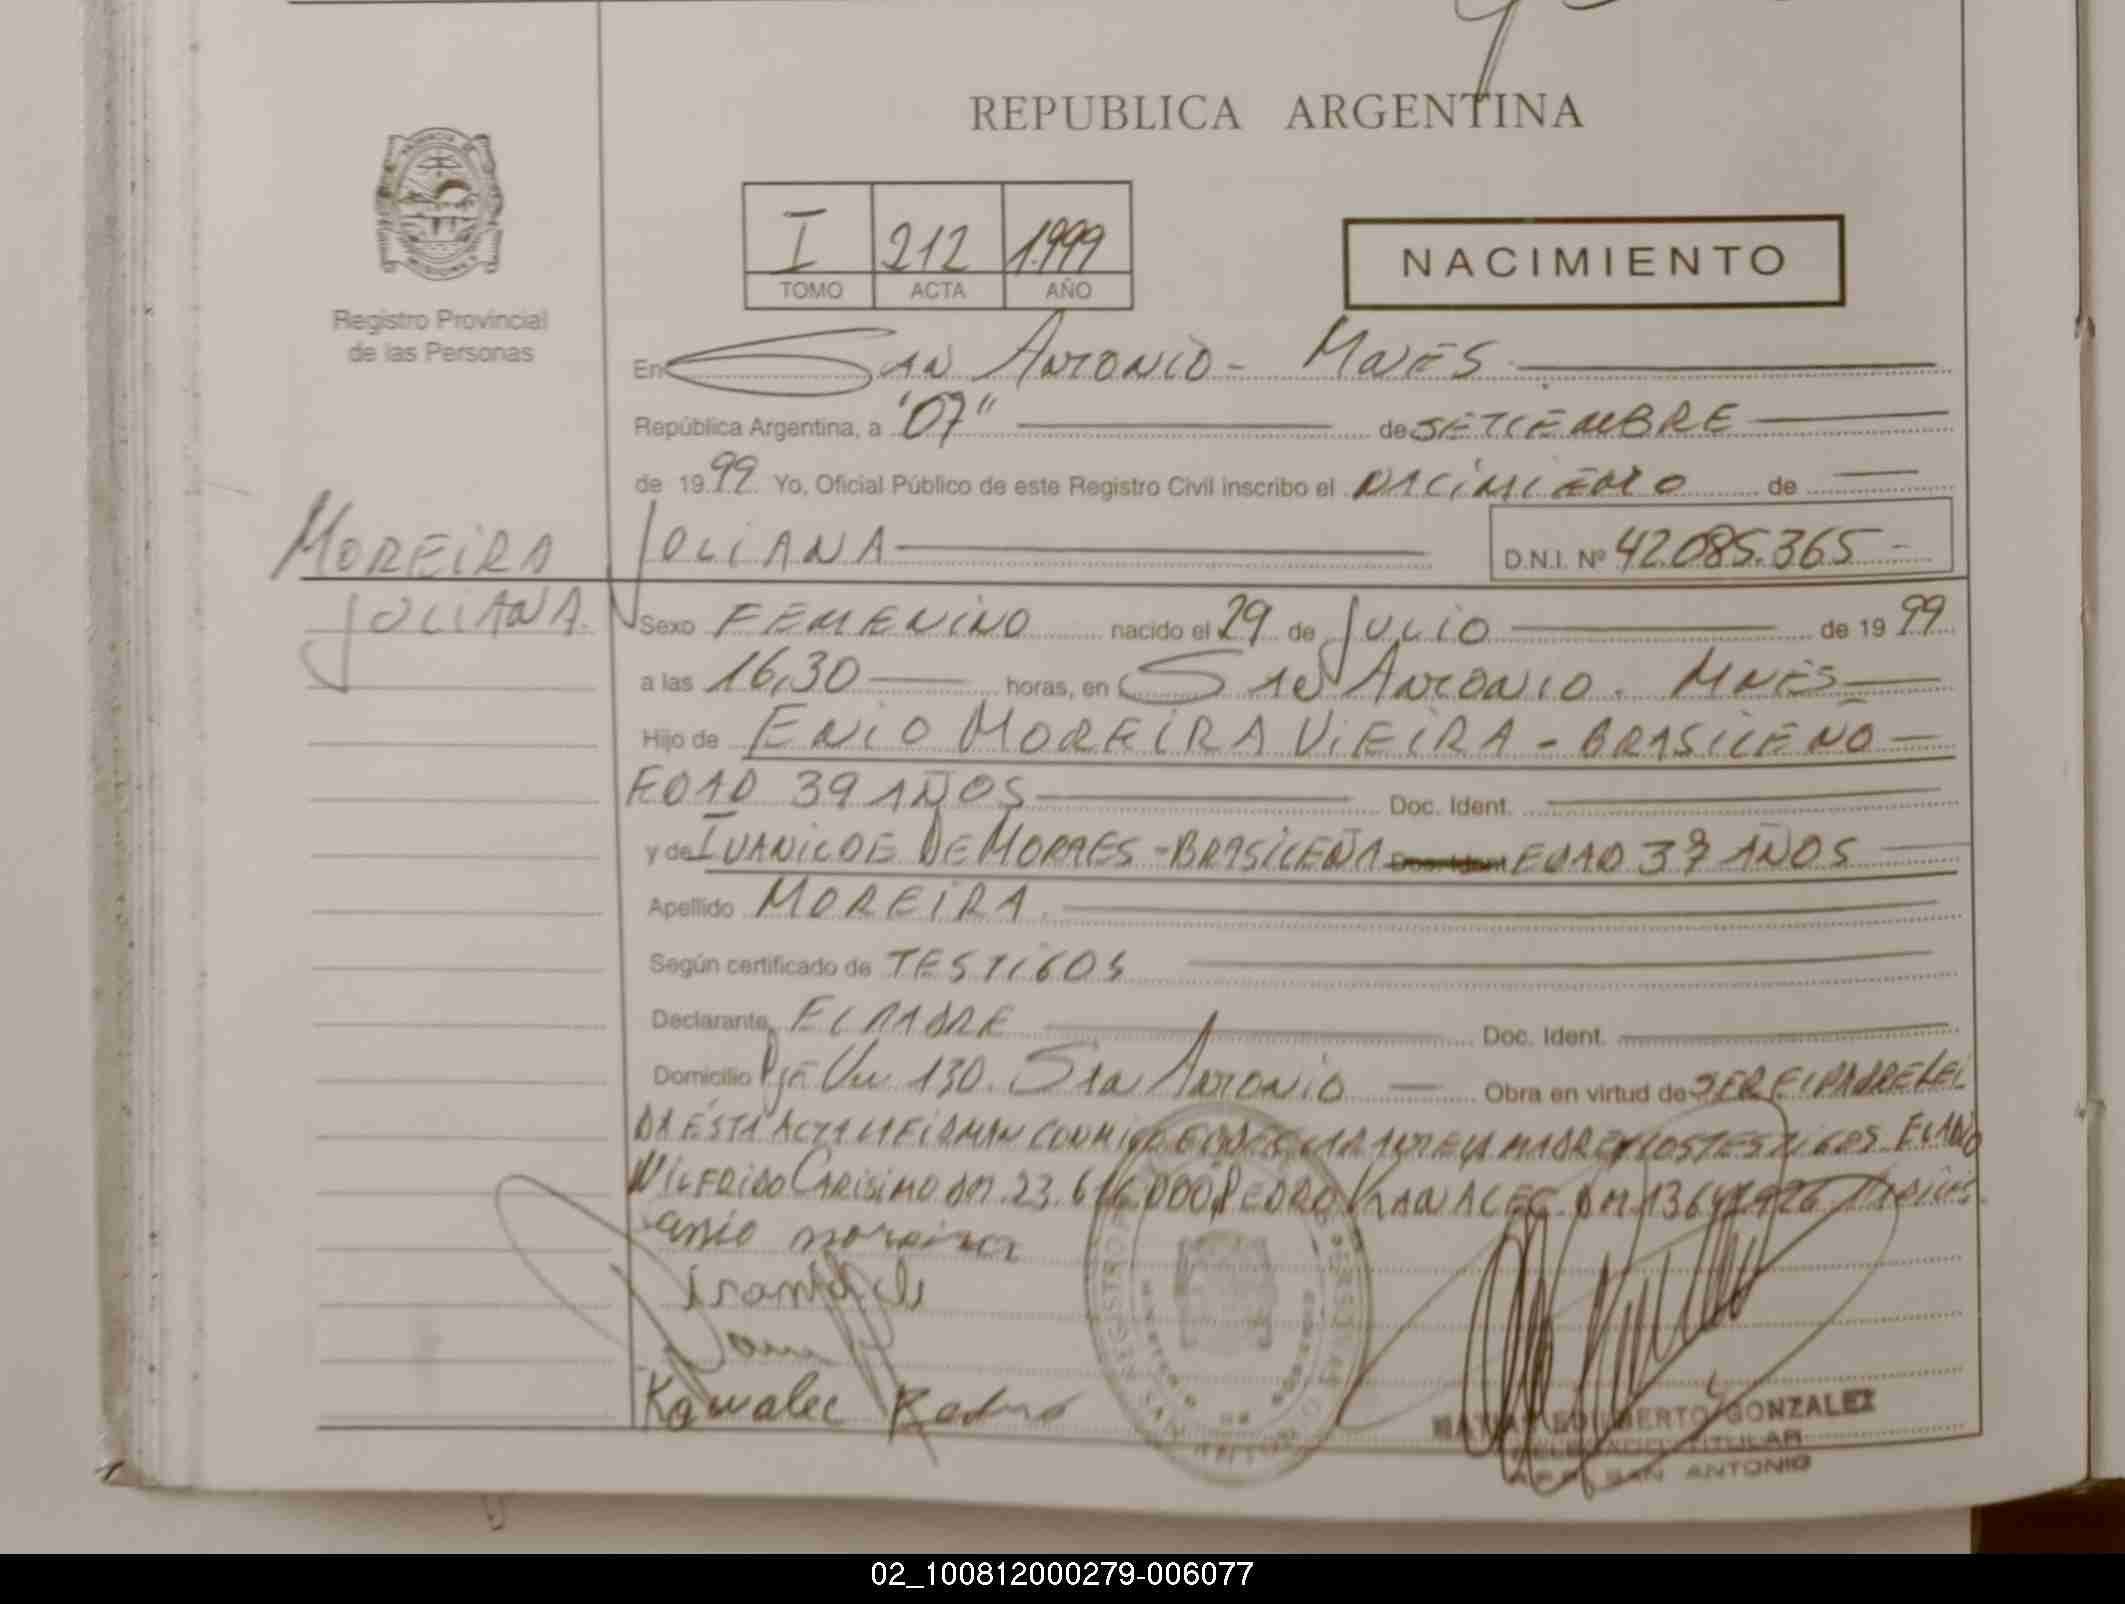 REPUBLICA ARGENTINA
I 212 1.999
TOMO ACTA AÑO
NACIMIENTO
Registro Provincial
de las Personas
En San Antonio - Mnes
República Argentina, a "07" de SETIEMBRE
de 19 99 Yo, Oficial Público de este Registro Civil inscribo el NACIMIENTO de
MOREIRA
JULIANA
JULIANA D.N.I. Nº 42.085.365 -
Sexo FEMENINO nacido el 29 de JULIO de 19 99
a las 16,30 horas, en San Antonio. Mnes
Hijo de ENIO MOREIRA VIEIRA - BRASILEÑO
EDAD 39 AÑOS Doc. Ident.
y de IVANILDE DE MORAES - BRASILEÑA EDAD 37 AÑOS
Apellido MOREIRA
Según certificado de TESTIGOS
Declarante EL PADRE Doc. Ident.
Domicilio 130. San Antonio Obra en virtud de SER EL PADRE LEI
DA ESTA ACTA LA FIRMAN CONMIGO LA MADRE Y LOS TESTIGOS
WILFRIDO CARISIMO DNI 23. PEDRO KAWALEC. DNI
enio moreira
Kawalec Pedro
GONZALEZ
DELEGADO TITULAR
SAN ANTONIO
02_100812000279-006077